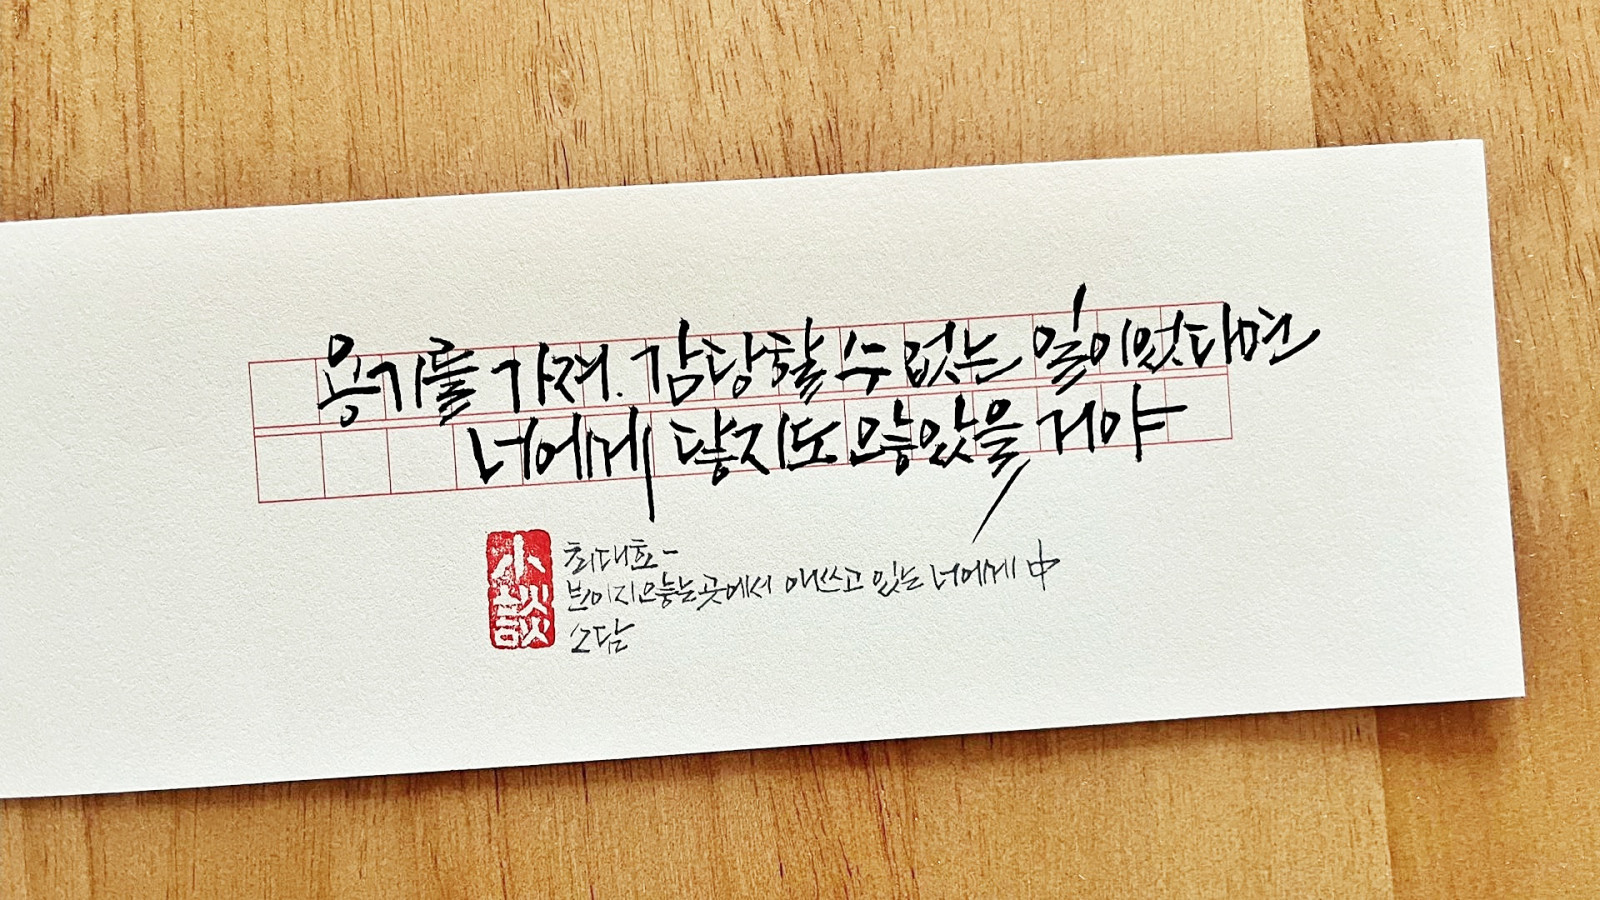 용기를 가져. 감당할 수 없는 일이었다면
너에게 닿지도 않았을 거야
小談
최대호-
보이지 않는 곳에서 애쓰고 있는 너에게 中
소담